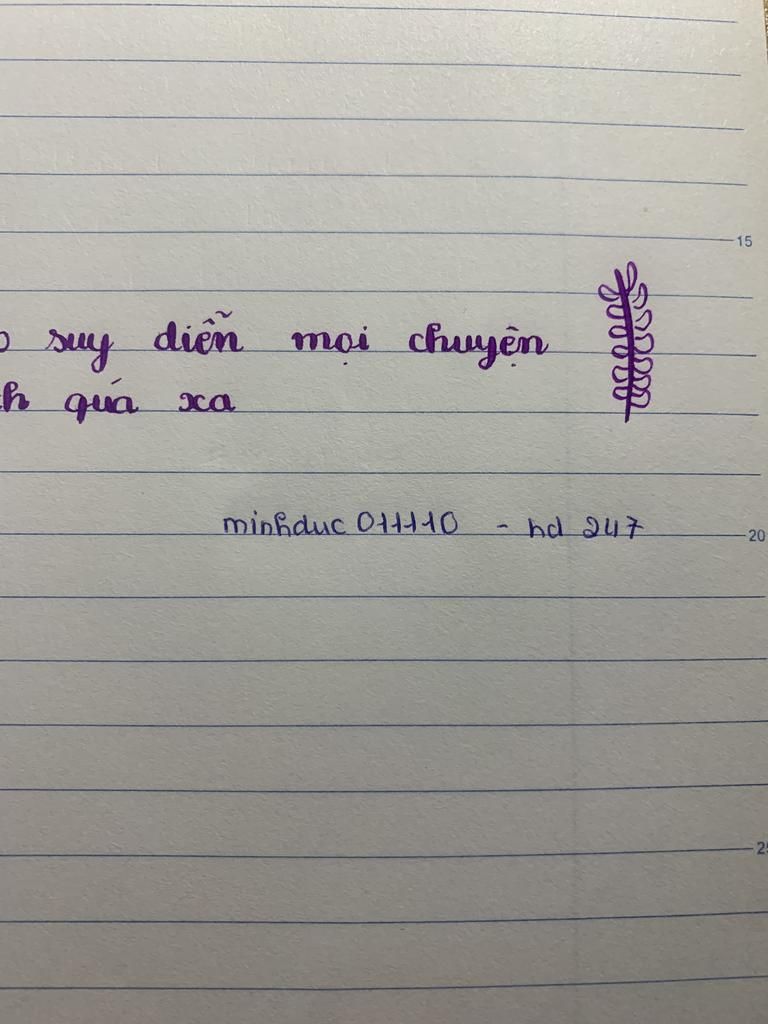 15
suy diễn mọi chuyện
quá xa
minhduc 011110 - hd 247
20